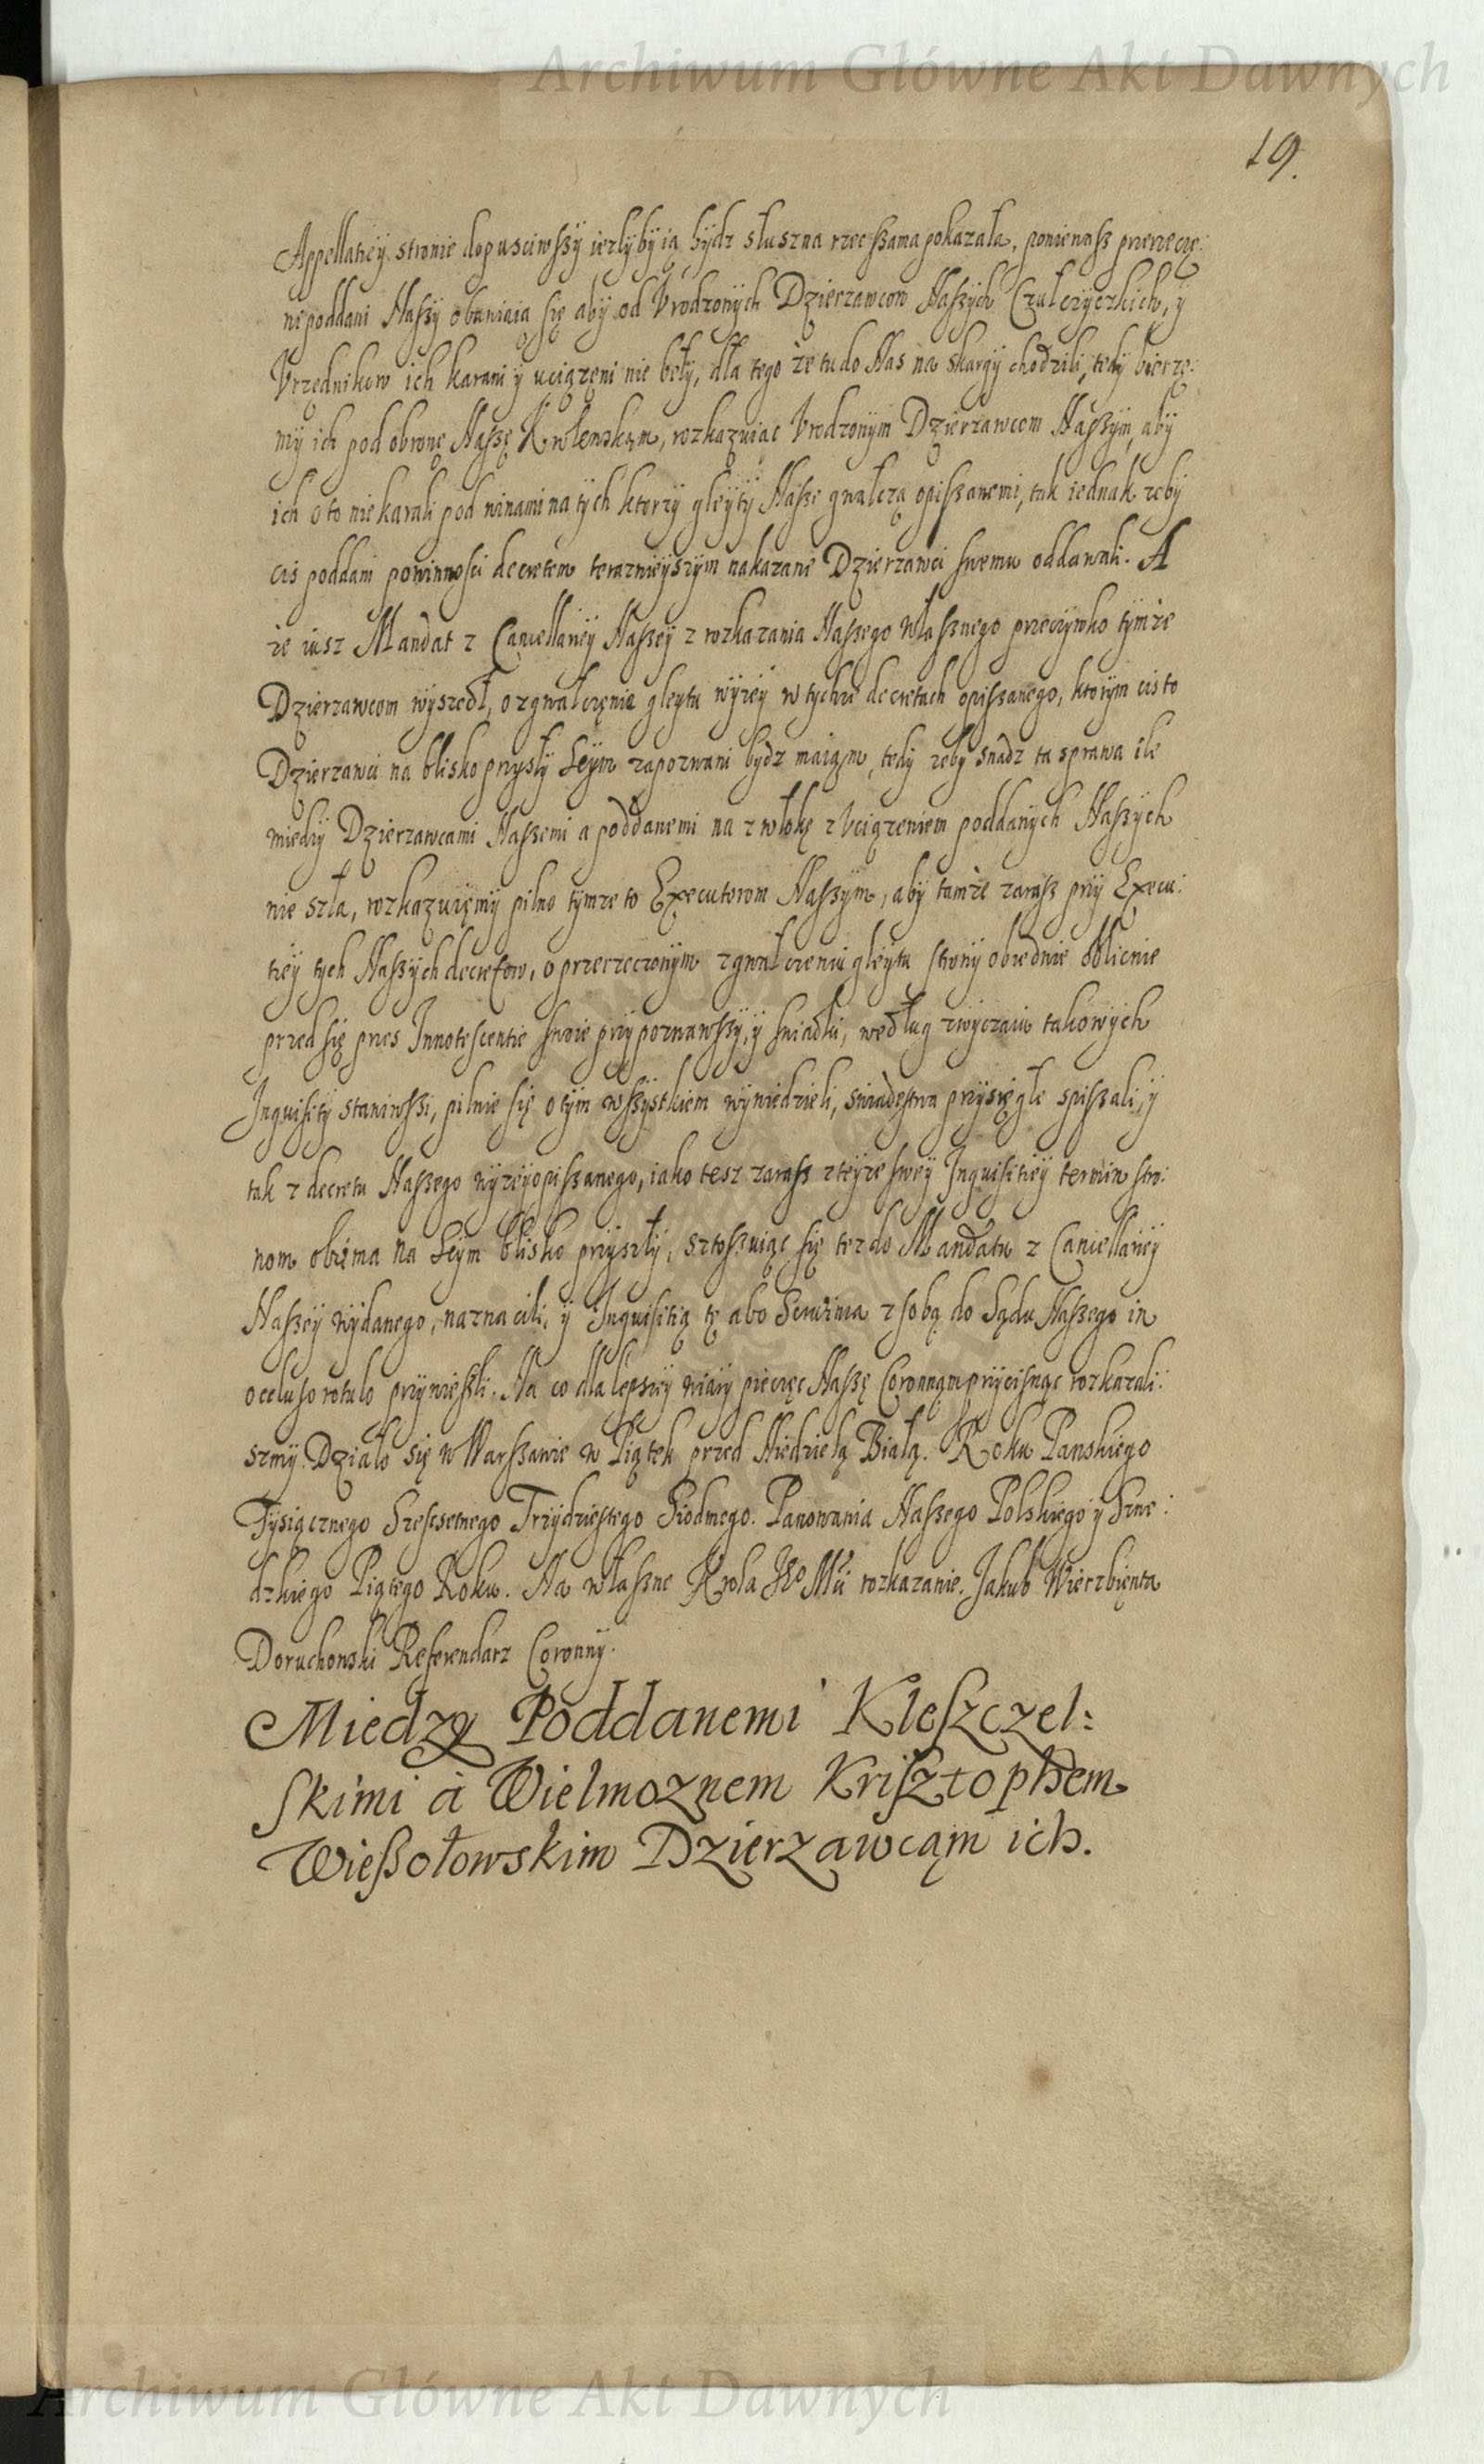 Archiwum Główne Akt Dawnych
19.
Appellatiey stronie dopusciwszy iezlyby ią bydz słuszna rzecz szama pokazała, ponieuasz przerzeczę:
ni poddani Naszy obawiaią się aby od Vrodzonych Dzierzawcow Naszych Czulczyczkich, y
Vrzednikow ich karani y uciązęni nie beły, dla tego że tu do Nas na skargy chodzili, tedy bierzę:
my ich pod obronę Naszę Krolewską, rozkazuiąc Vrodzonym Dzierzawcom Naszym, aby
ich o to nie karali pod winami na tych ktorzy gleyty Nasze gwałczą opiszanemi, tak iednak zeby
cis poddani powinnosci decretem teraznieyszym nakazane Dzierzawci swemu oddawali. A
że iusz Mandat z Cancellaryey Naszey z rozkazania Naszego własznego przeciwko tymże
Dzierzawcom wyszedł, o zgwałcęnie gleytu wyżey w tychże decretach opissanego, ktorym cis to
Dzierzawci na blisko przyszły Seym zapozwani bydz maią, tedy zeby snadz ta sprawa ile
miedzy Dzierzawcami Naszemi a poddanemi na zwłokę z Vciązeniem poddanych Naszych
nie szła, rozkazuięmy pilno tymze to Executorom Naszym, aby tamże zarasz przy Execu:
tiey tych Naszych decretow, o przerzeczonym zgwałczeniu gleytu strony obiednie oblicnie
przed się przes Innotescentie swoie przypozwawszy, y swiadki, według zwyczaiu takowych
Inquisitiy stawiwszi, pilnie się o tym wszystkiem wywiedzieli, swiadestwa przysięgłe spiszali, y
tak z decretu Naszego wyzey opiszanego, iako tesz zarasz z teyze swey Inquisitiey termin stro:
nom obiema na Seym blisko przyszły, sztoszuiąc się tez do Mandatu z Cancellariey
Naszey wydanego, naznacili, y Inquisitią tę abo Scrutinia z sobą do Sądu Naszego in
ocluso rotulo przynieszli. Na co dla lepszey wiary pieczęc Naszę Coronną przycisnąc rozkazali:
szmy. Działo się w Warszawie w Piątek przed Niedzielą Białą. Roku Panskiego
Tysiącznego Szescsetnego Trzydziestego Siodmego. Panowania Naszego Polskiego y Szwe:
dzkiego Piątego Roku. Na własne Krola JKo Mći rozkazanie. Jakub Wierzbięnta
Doruchowski Referendarz Coronny.
Miedzy Poddanemi Kleszczel:
skimi a Wielmoznem Krisztophem
Wieszołowskim Dzierzawcąm ich.
Archiwum Główne Akt Dawnych